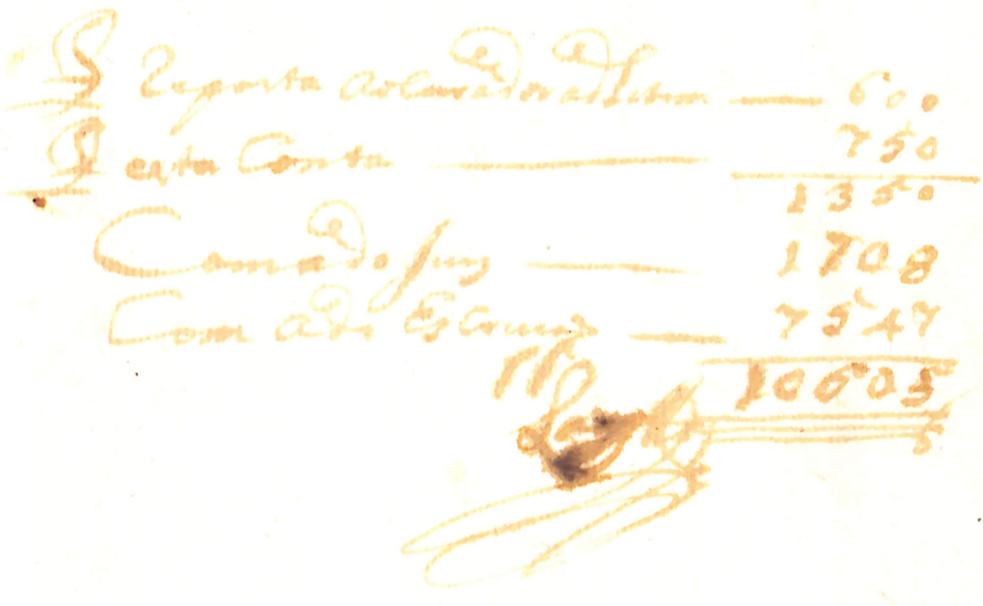 Reposta ao Curador ad Litem 600
esta Conta 750
1350
Com a do Juiz 1708
Com a do Escrivão 7547
10605